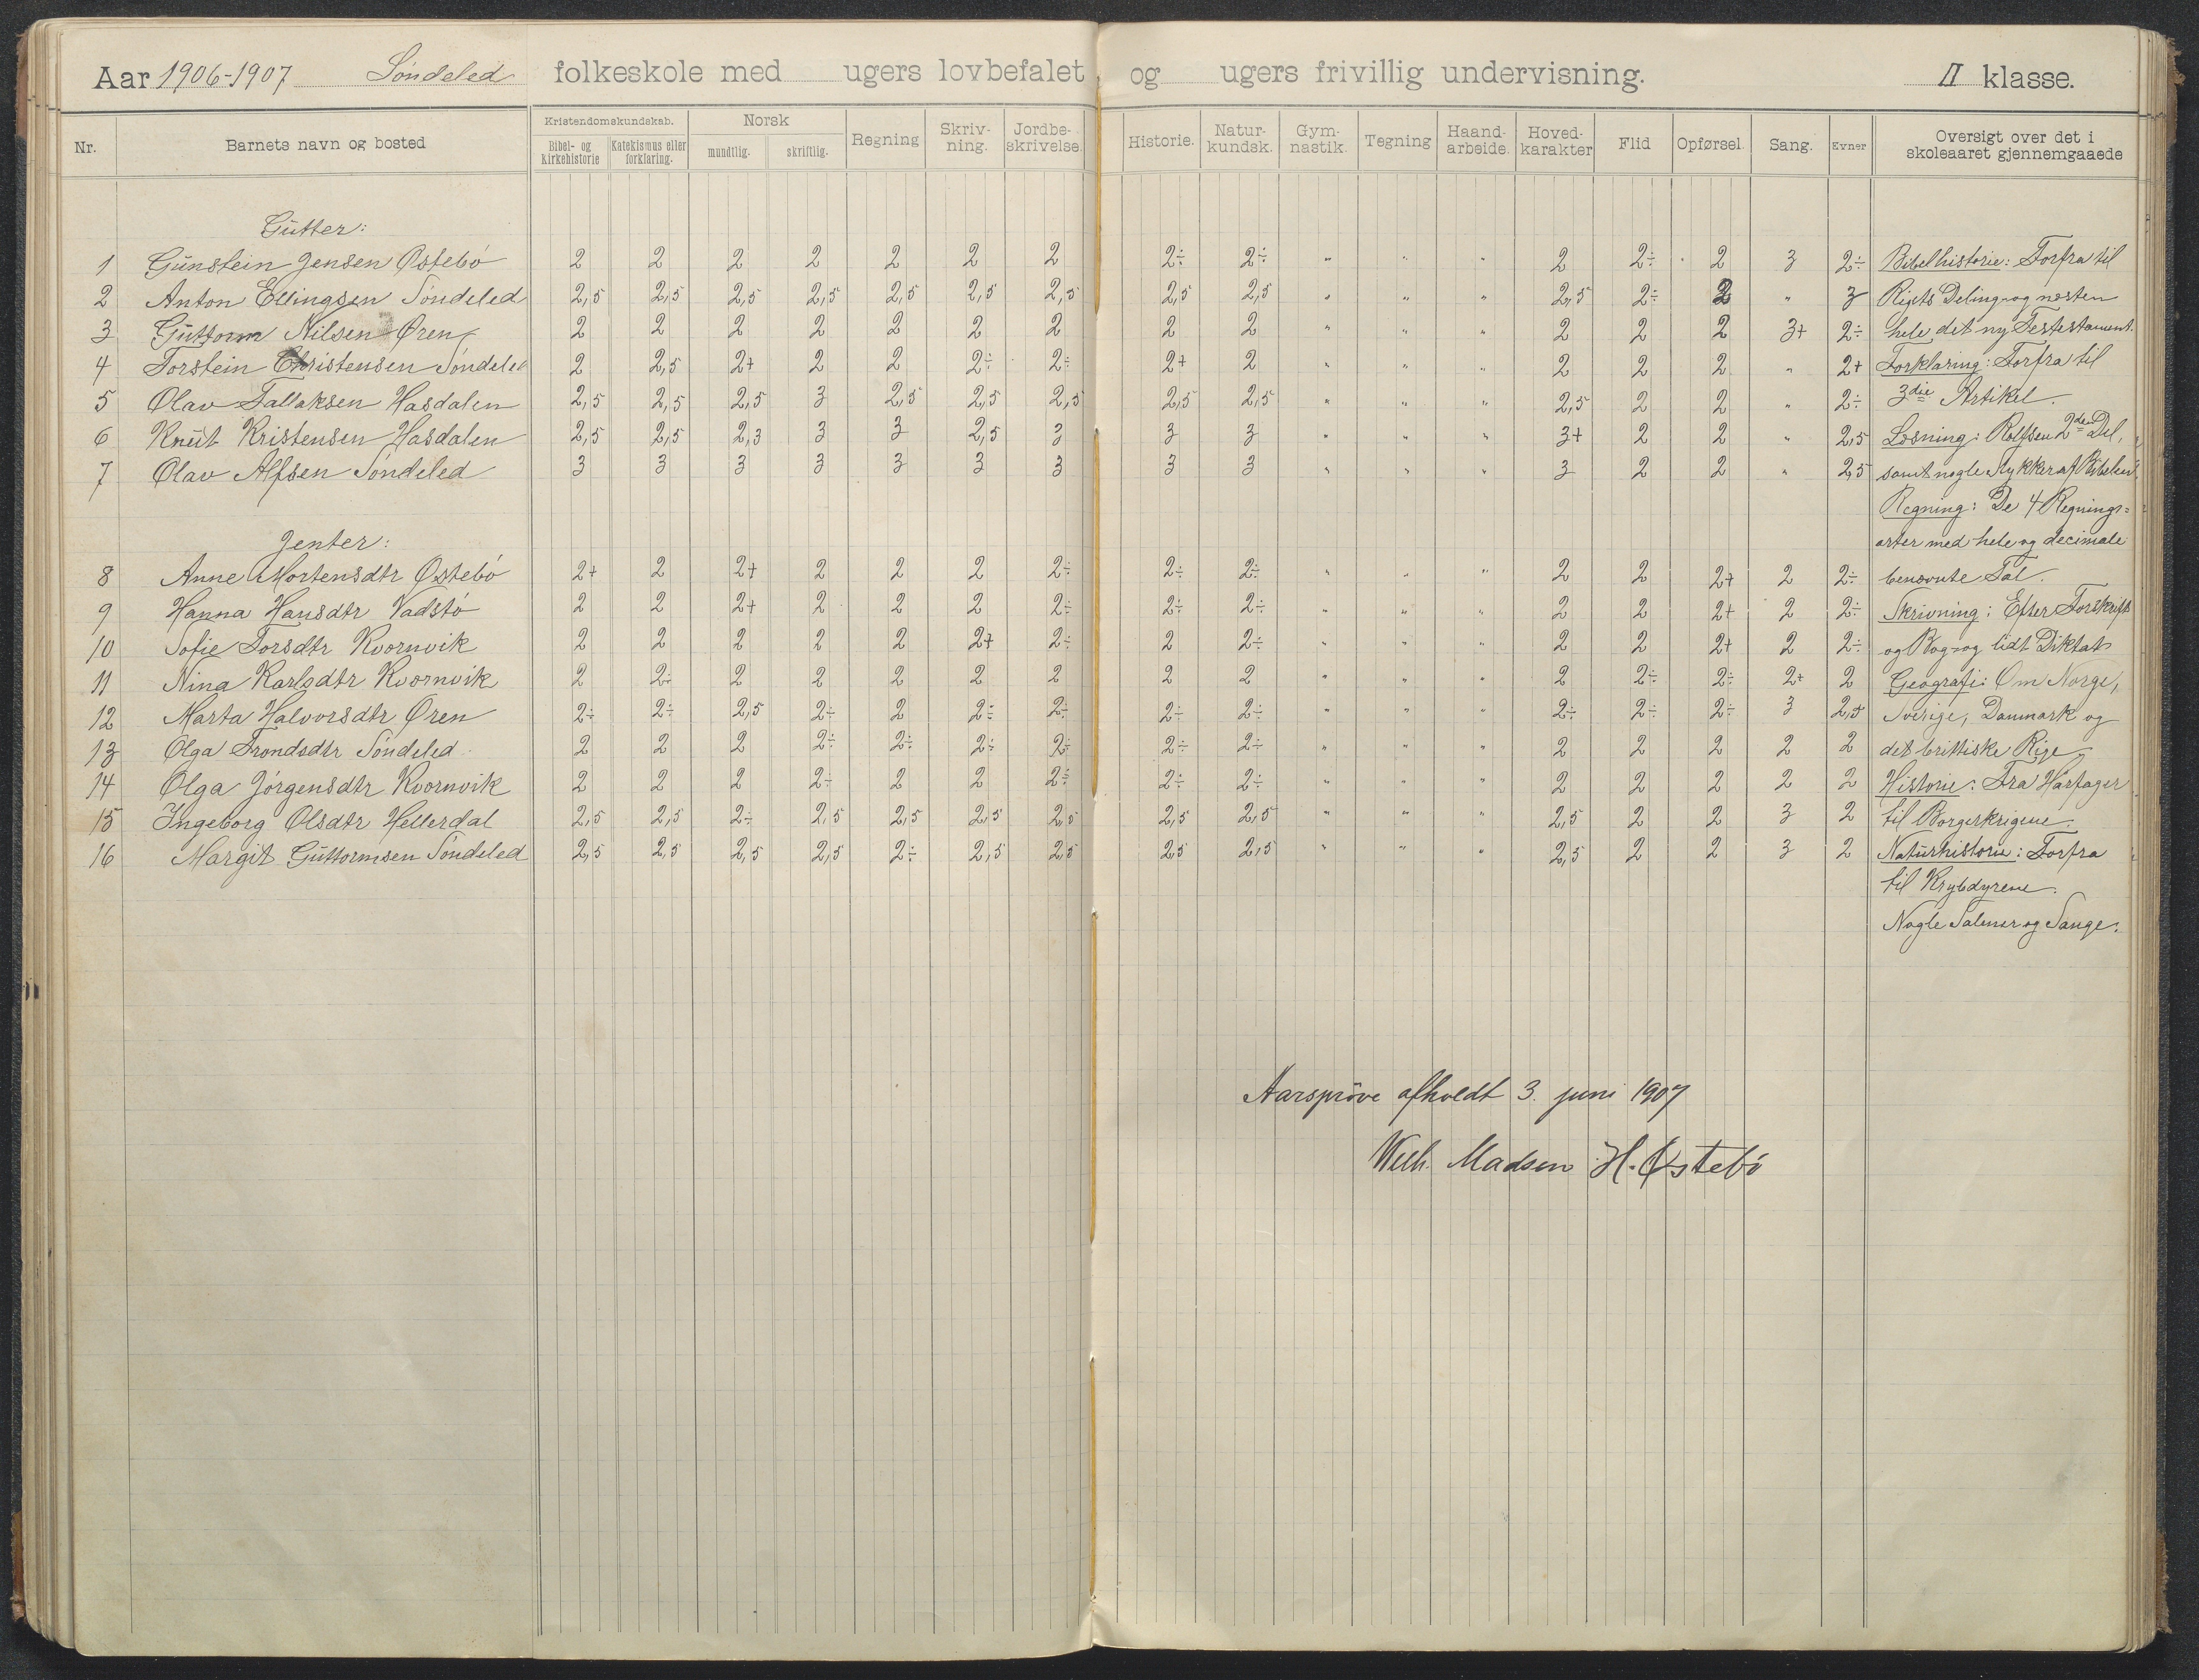 Aar 1906-1907 Söndeled folkeskole med ugers lovbefalet og ugers frivillig undervisning. II klasse.
Nr. Barnets navn og bosted Kristendomskundskab. Bibel- og kirkehistorie Katekismus eller forklaring. Norsk mundtlig. skriftlig. Regning Skriv-ning. Jordbe-skrivelse. Historie. Natur-kundsk. Gym-nastik. Tegning Haand-arbeide. Hoved-karakter Flid Opførsel. Sang. Evner Oversigt over det i skoleaaret gjennemgaaede
Gutter:
1 Gunstein Jensen Østebö 2 2 2 2 2 2 2 2÷ 2÷ " " " 2 2÷ 2 3 2÷
2 Anton Ellingsen Söndeled 2,5 2,5 2,5 2,5 2,5 2,5 2,5 2,5 2,5 " " " 2,5 2÷ 2 " 3
3 Guttorm Nilsen Øren 2 2 2 2 2 2 2 2 2 " " " 2 2 2 3+ 2÷
4 Torstein Christensen Söndeled 2 2,5 2+ 2 2 2÷ 2÷ 2+ 2 " " " 2 2 2 " 2+
5 Olav Tallaksen Hasdalen 2,5 2,5 2,5 3 2,5 2,5 2,5 2,5 2,5 " " " 2,5 2 2 " 2÷
6 Knut Kristensen Hasdalen 2,5 2,5 2,3 3 3 2,5 3 3 3 " " " 3+ 2 2 " 2,5
7 Olav Alfsen Söndeled 3 3 3 3 3 3 3 3 3 " " " 3 2 2 " 2,5
Jenter:
8 Anne Mortensdtr Østebö 2+ 2 2+ 2 2 2 2÷ 2÷ 2÷ " " " 2 2 2+ 2 2÷
9 Hanna Hansdtr Vadstö 2 2 2+ 2 2 2 2÷ 2÷ 2÷ " " " 2 2 2+ 2 2÷
10 Sofie Torsdtr Kvornvik 2 2 2 2 2 2+ 2÷ 2 2÷ " " " 2 2 2+ 2 2÷
11 Nina Karlsdtr Kvornvik 2 2÷ 2 2 2 2 2 2 2 " " " 2 2÷ 2÷ 2+ 2
12 Marta Halvorsdtr Øren 2÷ 2÷ 2,5 2÷ 2 2÷ 2÷ 2÷ 2÷ " " " 2÷ 2÷ 2÷ 3 2,5
13 Olga Trondsdtr Söndeled 2 2 2 2÷ 2÷ 2÷ 2÷ 2÷ 2÷ " " " 2 2 2 2 2
14 Olga Jörgensdtr Kvornvik 2 2 2 2÷ 2 2 2÷ 2÷ 2÷ " " " 2 2 2 2 2
15 Ingeborg Olsdtr Hellerdal 2,5 2,5 2÷ 2,5 2,5 2,5 2,5 2,5 2,5 " " " 2,5 2 2 3 2
16 Margit Guttormsen Söndeled 2,5 2,5 2,5 2,5 2÷ 2,5 2,5 2,5 2,5 " " " 2,5 2 2 3 2
Bibelhistorie: Forfra til
Rigets Deling og næsten
hele det ny Testestament.
Forklaring: Forfra til
3die Artikel.
Læsning: Rolfsen 2den Del,
samt nogle stykker af Bibelen.
Regning: De 4 Regnings=
arter med hele og decimale
benævnte Tal.
Skrivning: Efter Forskrift
og Bog og lidt Diktat
Geografi: Om Norge,
Sverige, Danmark og
det brittiske Rige
Historie: Fra Hårfager
til Borgerkrigene.
Naturhistorie: Forfra
til Krybdyrene.
Nogle Salmer og Sange.
Aarspröve afholdt 3. juni 1907
Wilh. Madsen H. Østebö